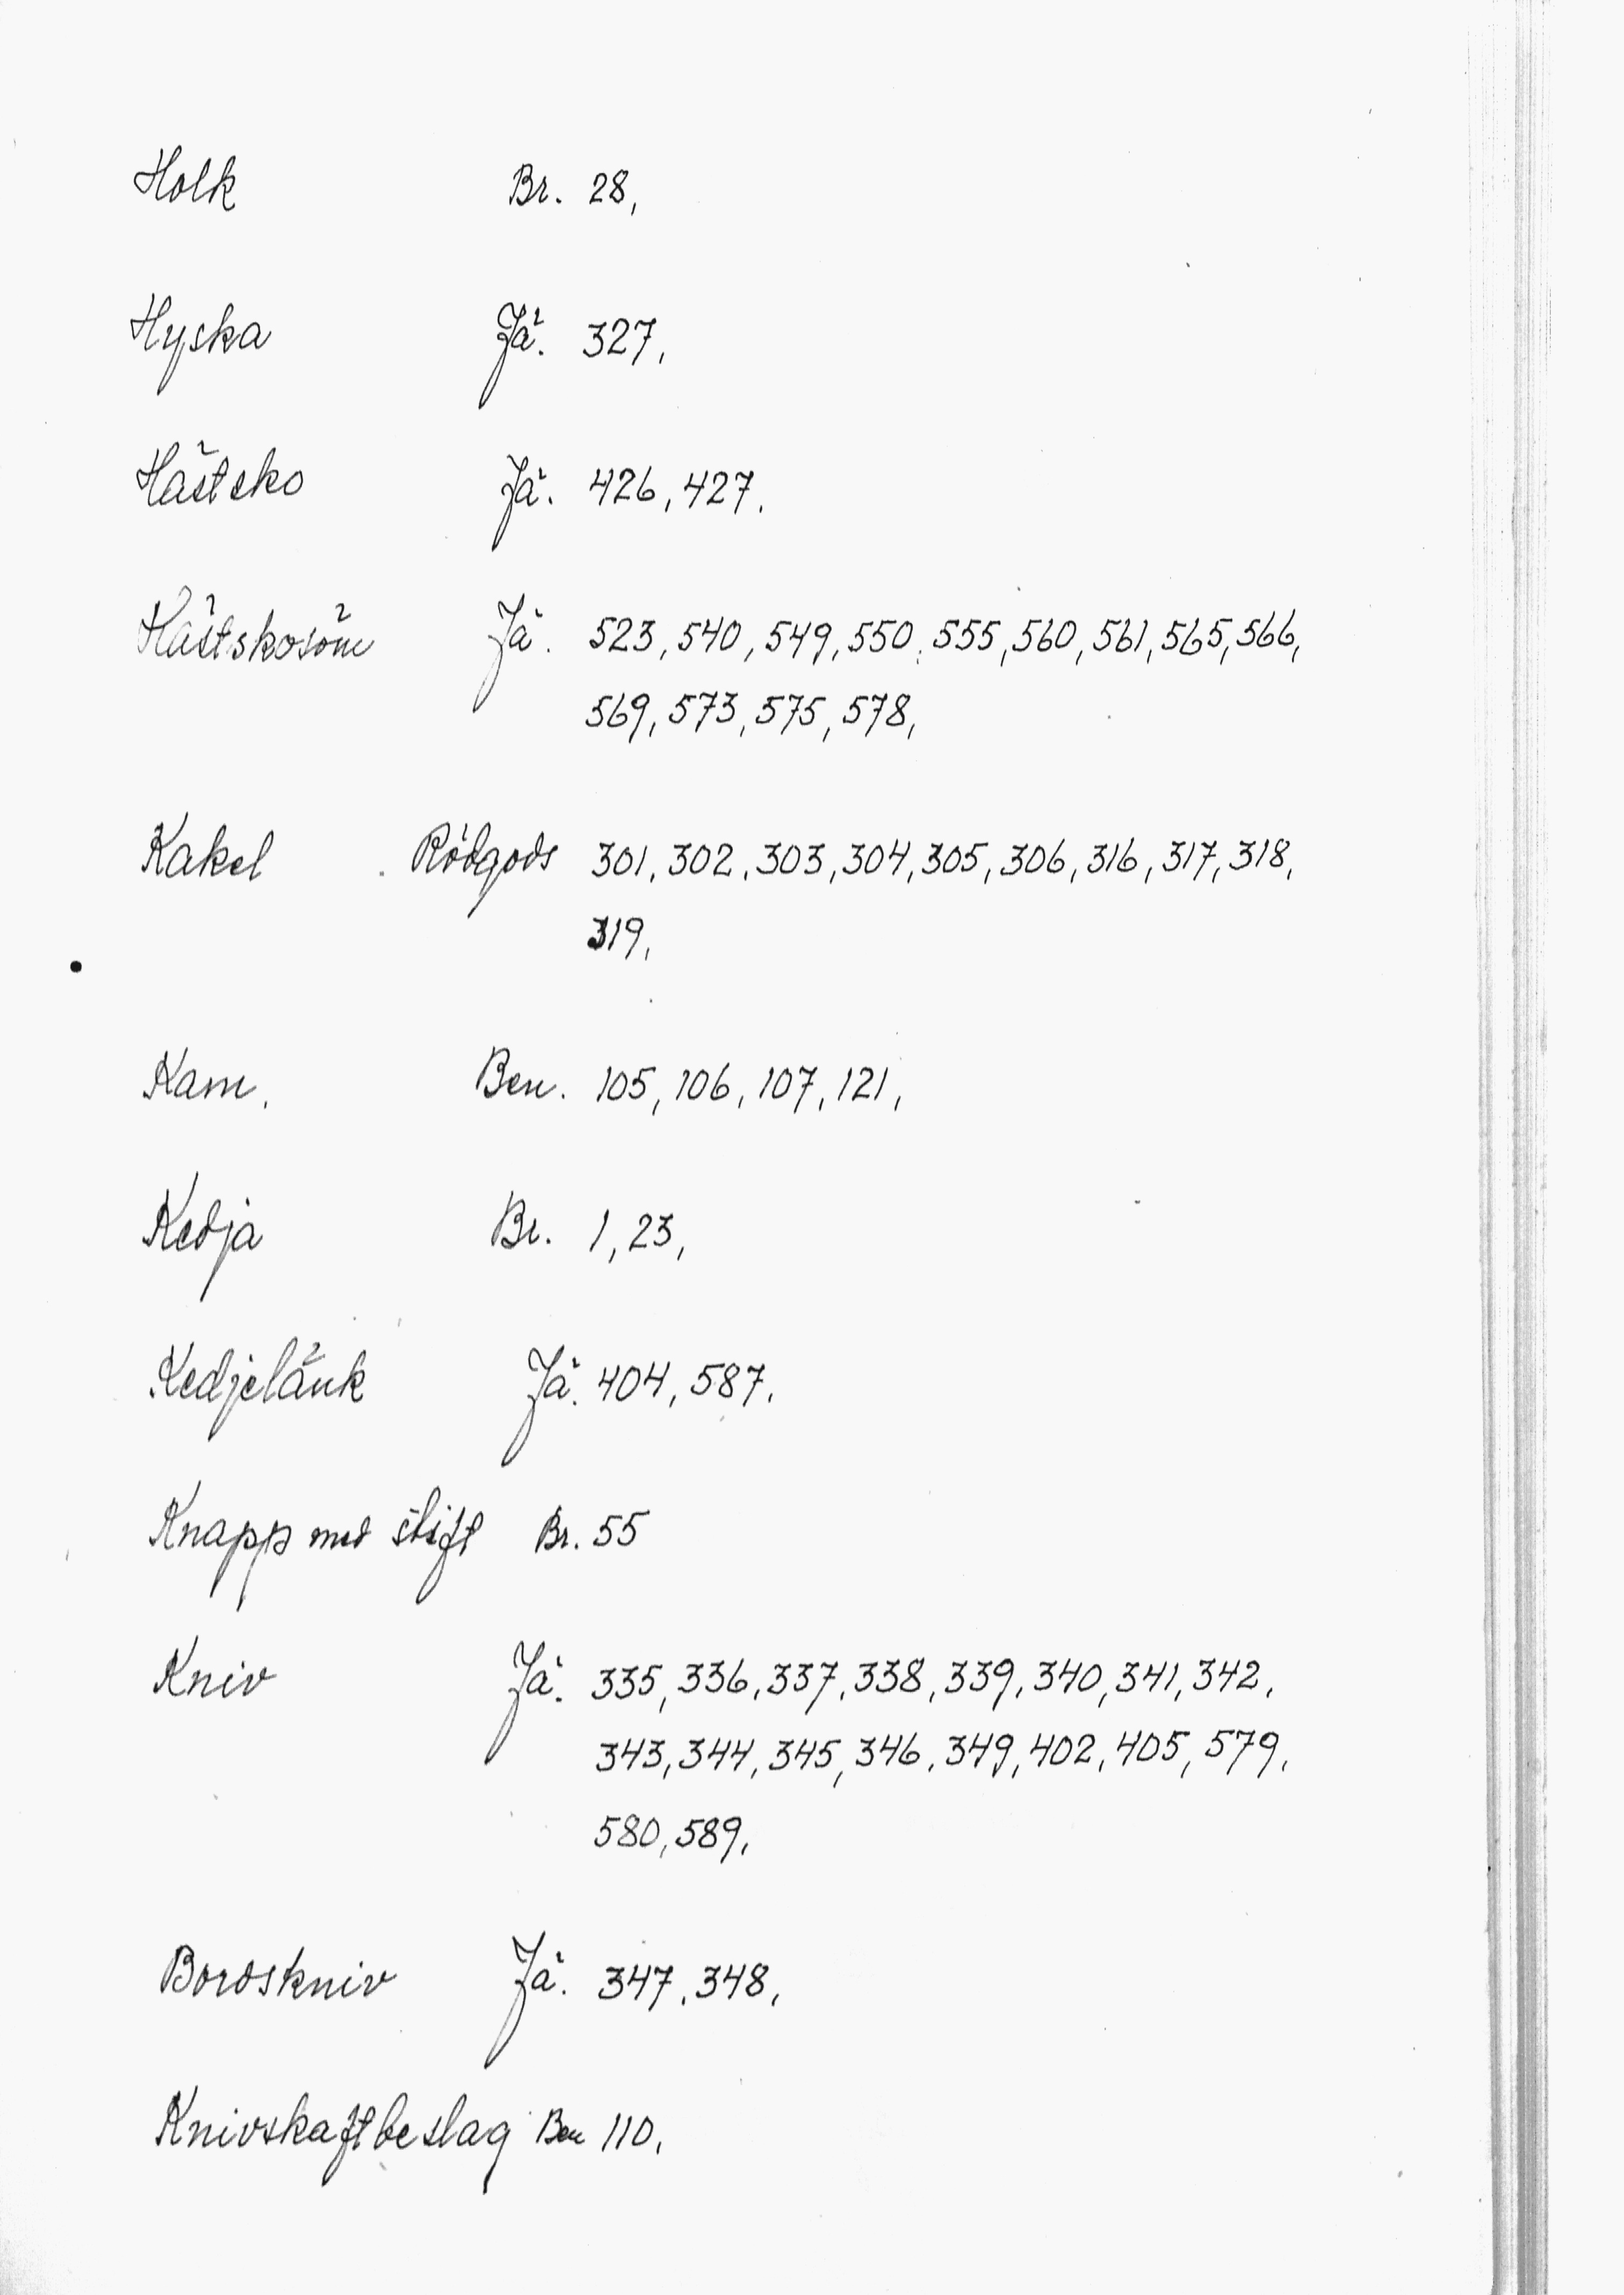 Holk Br. 28,
Hyska Jä. 327,
Hästsko Jä. 426, 427,
Hästskosöm Jä. 523, 540, 549, 550, 555, 560, 561, 565, 566,
569, 573, 575, 578,
Kakel Rödgods 301, 302, 303, 304, 305, 306, 316, 317, 318,
319,
Kam. Ben. 105, 106, 107, 121,
Kedja Br. 1, 23,
Kedjelänk Jä. 404, 587,
Knapp med stift Br. 55
Kniv Jä. 335, 336, 337, 338, 339, 340, 341, 342,
343, 344, 345, 346, 349, 402, 405, 579,
580, 589,
Bordskniv Jä. 347, 348,
Knivskaftbeslag Ben 110,